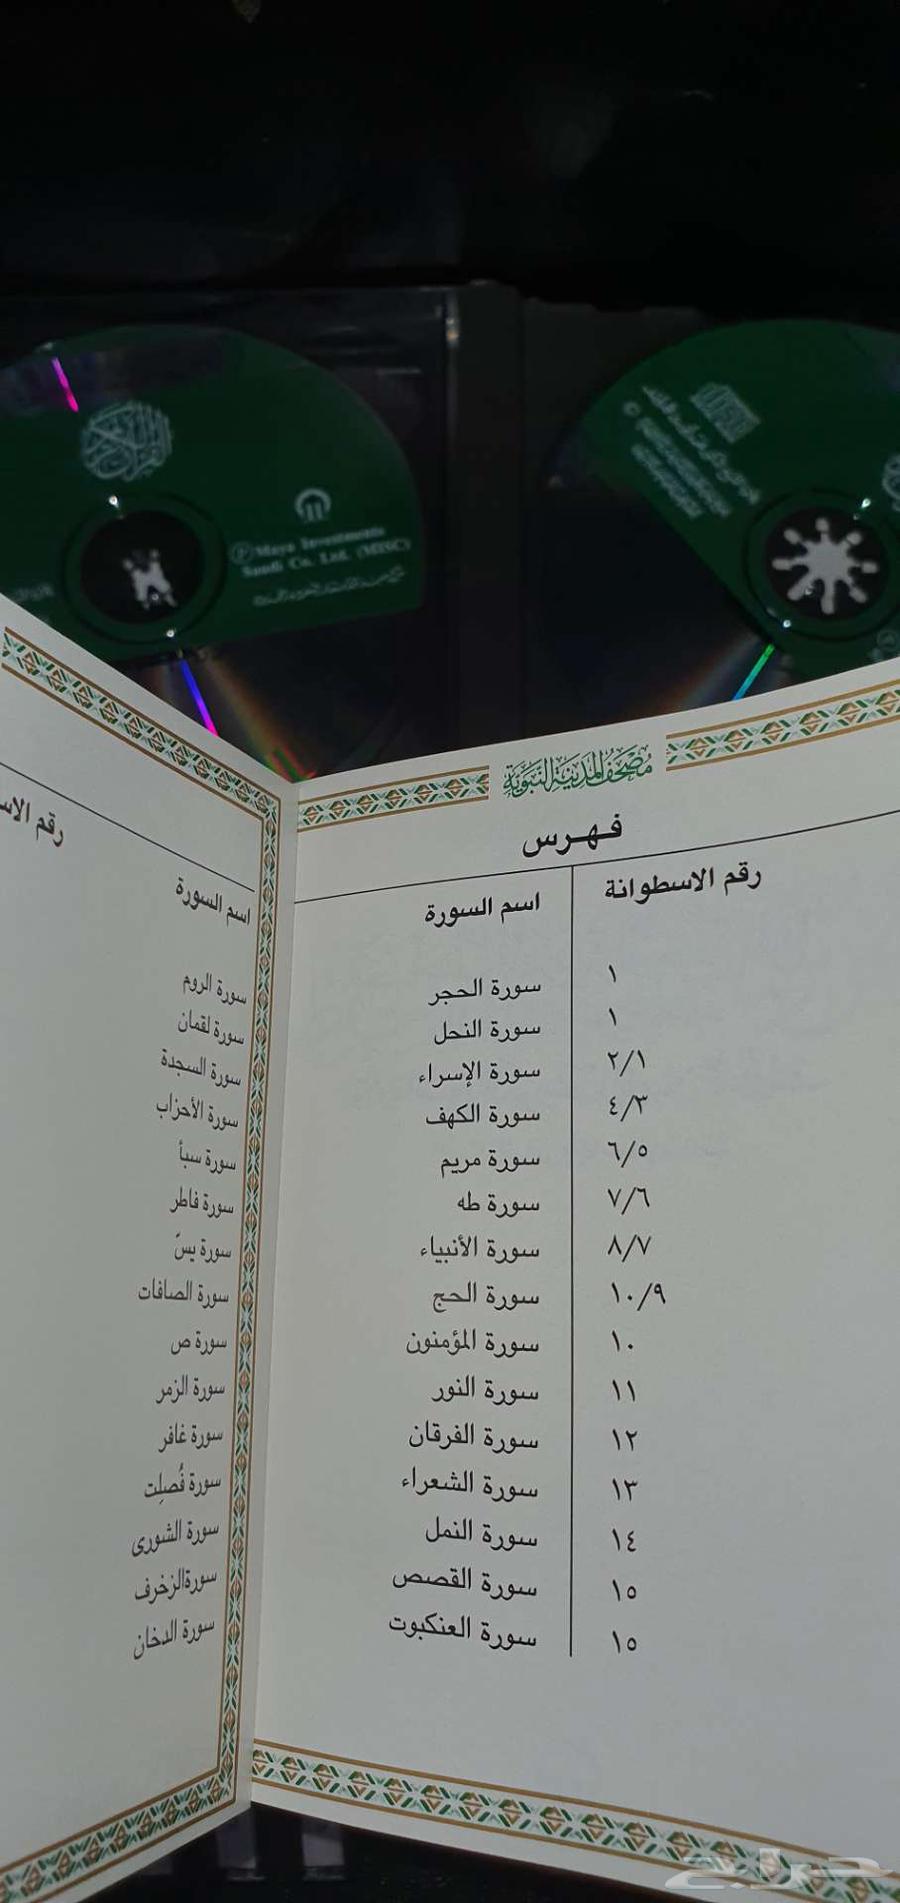 القرآن الكريم
Maya Investments
Saudi Co. Ltd. (MISC)
مصحف المدينة النبوية
فهرس
رقم الاسطوانة اسم السورة
١ سورة الحجر
١ سورة النحل
٢/١ سورة الإسراء
٤/٣ سورة الكهف
٦/٥ سورة مريم
٧/٦ سورة طه
٨/٧ سورة الأنبياء
١٠/٩ سورة الحج
١٠ سورة المؤمنون
١١ سورة النور
١٢ سورة الفرقان
١٣ سورة الشعراء
١٤ سورة النمل
١٥ سورة القصص
١٥ سورة العنكبوت
اسم السورة رقم
سورة الروم
سورة لقمان
سورة السجدة
سورة الأحزاب
سورة سبأ
سورة فاطر
سورة يسَ
سورة الصافات
سورة ص
سورة الزمر
سورة غافر
سورة فُصلِت
سورة الشورى
سورة الزخرف
سورة الدخان
حراج